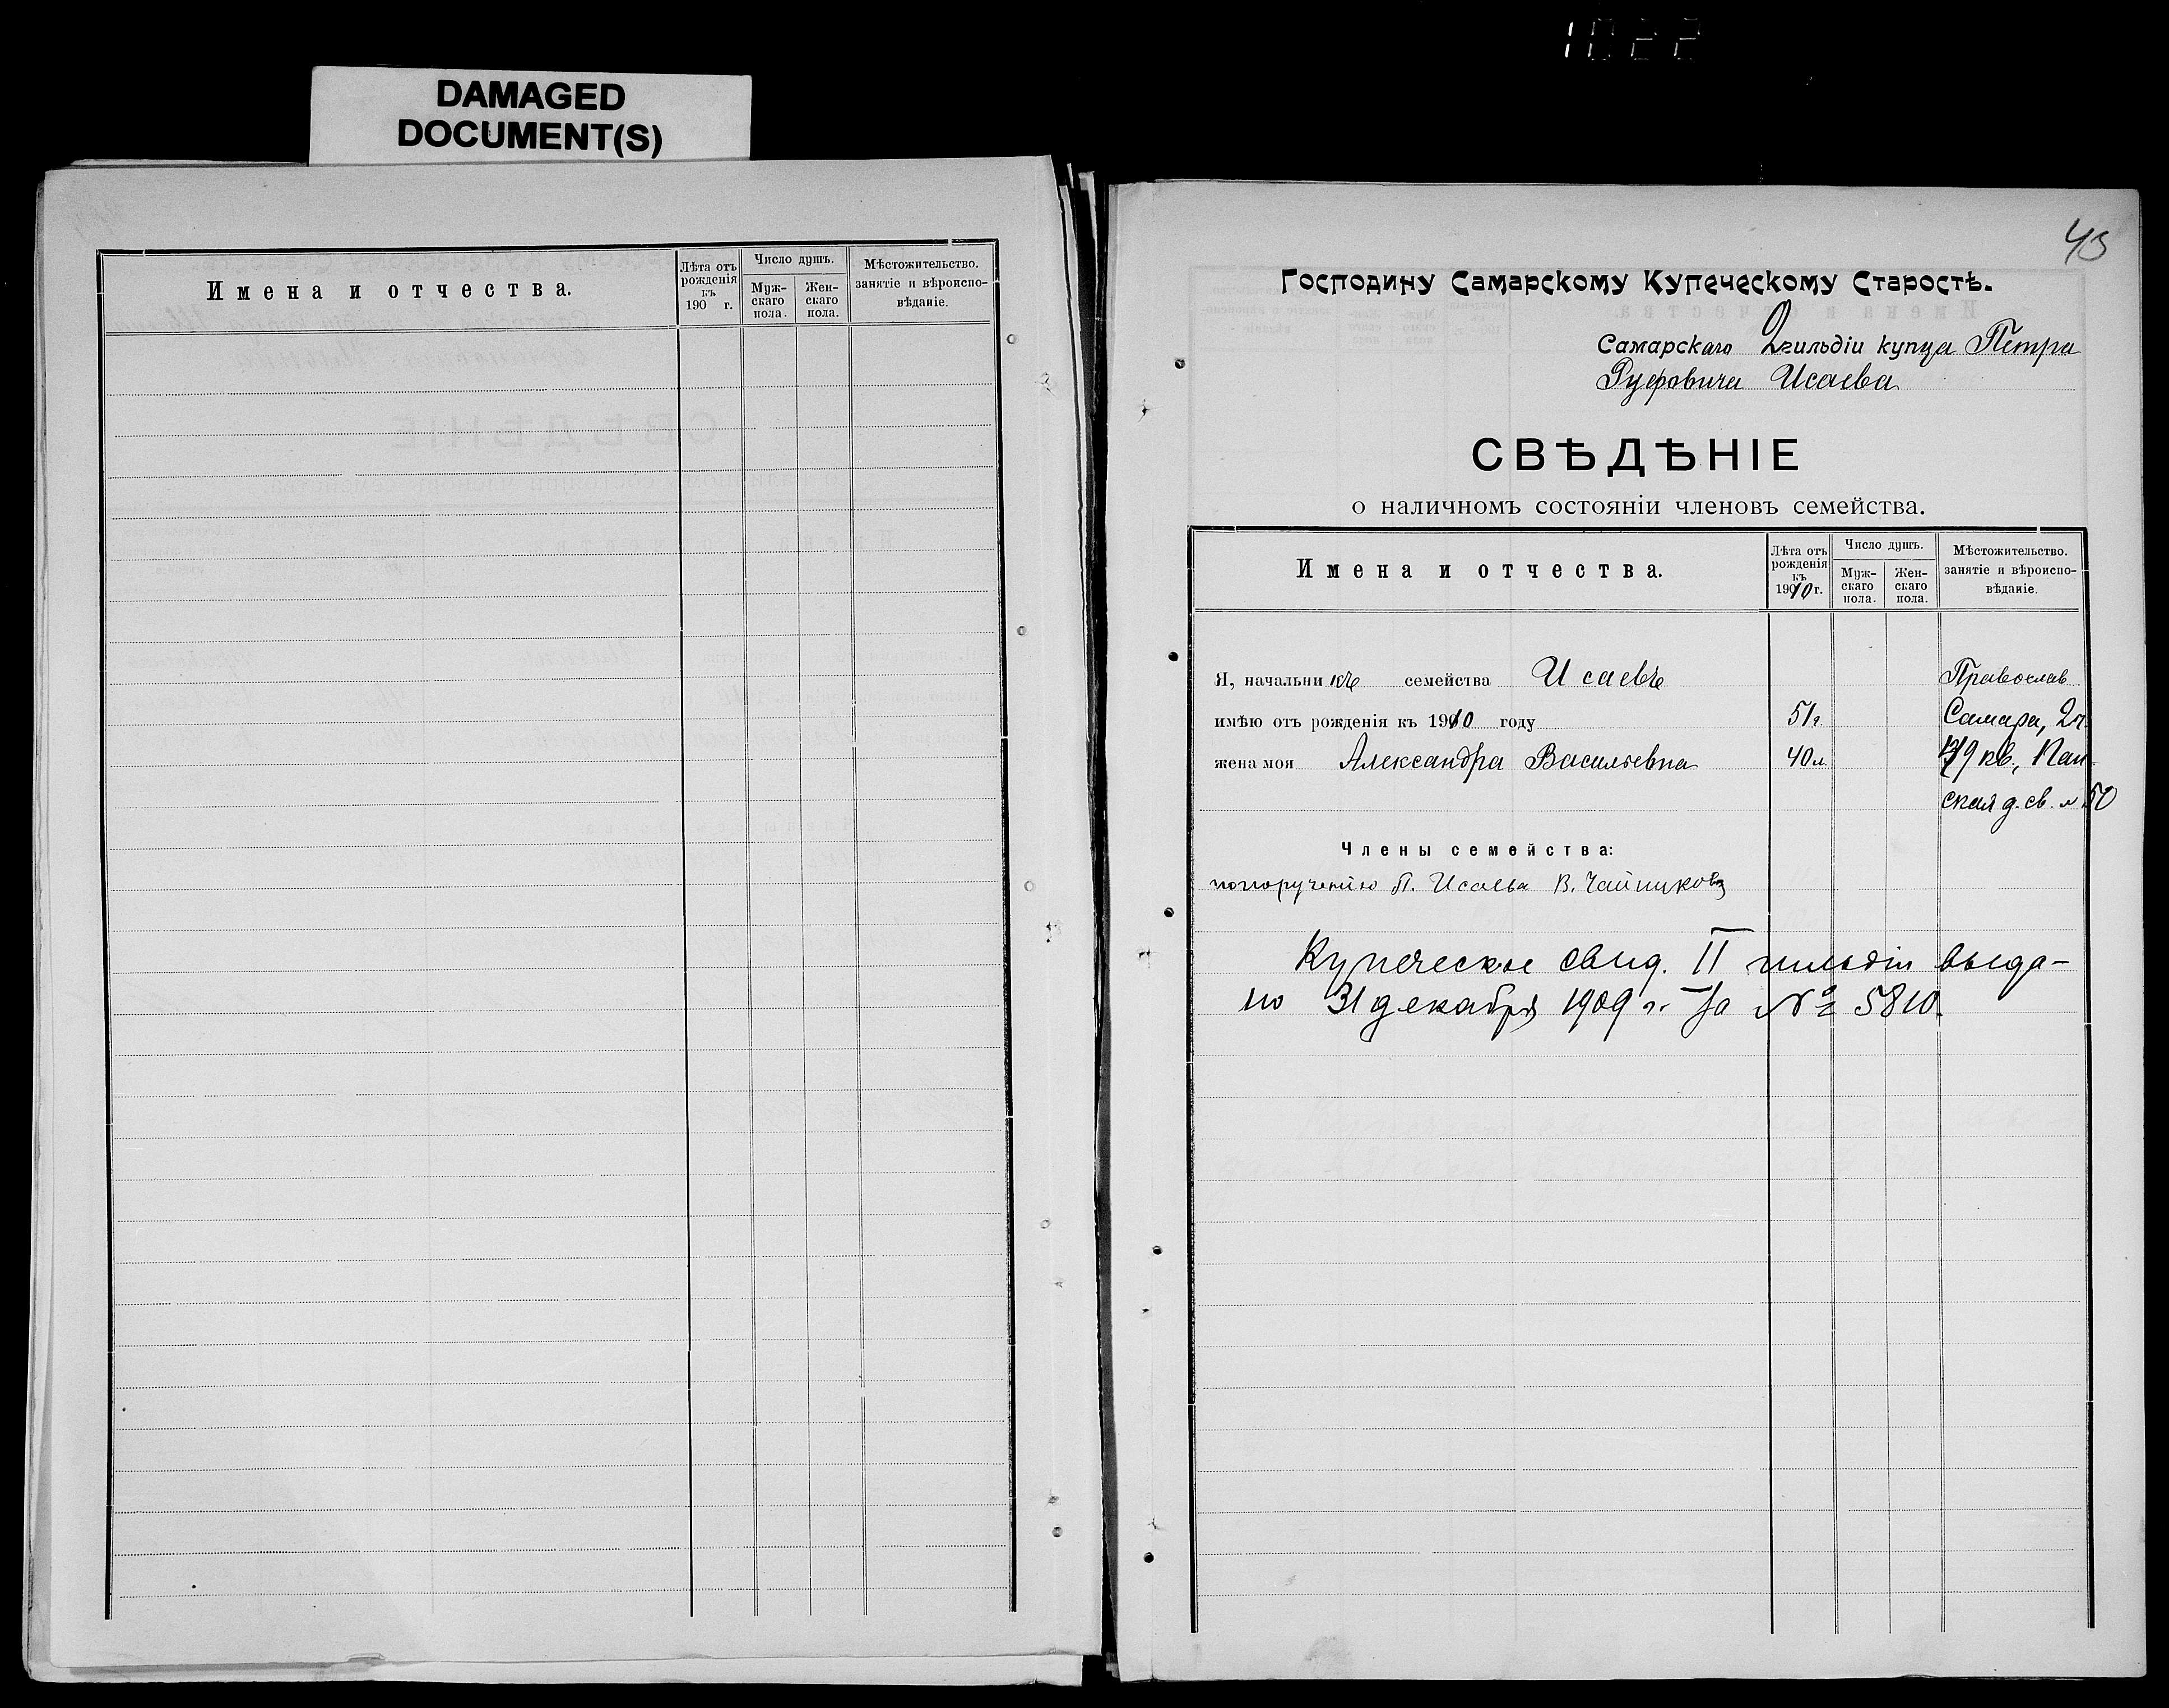 1022
DAMAGED
DOCUMENT(S)
Имена и отчества.
Лѣта отъ рожденія къ 190 г.
Число душъ.
Муж-скаго пола.
Жен-скаго пола.
Мѣстожительство. занятіе и вѣроиспо-вѣданіе.
43
Господину Самарскому Купеческому Старостѣ.
Самарскаго 2 гильдіи купца Петра
Руфовича Исаева
СВѢДѢНІЕ
о наличномъ состояніи членовъ семейства.
Имена и отчества.
Лѣта отъ рожденія къ 1910 г.
Число душъ.
Муж-скаго пола.
Жен-скаго пола.
Мѣстожительство. занятіе и вѣроиспо-вѣданіе.
Я, начальникъ семейства Исаевъ Православ
имѣю отъ рожденія къ 1910 году 51 г. Самара, 2 ч.
жена моя Александра Васильевна 40 л. 19 кв., Пан-
ская д. св. № 50
Члены семейства:
по порученію П. Исаева В. Чайниковъ
Купеческое свид. II гильдіи выда-
но 31 декабря 1909 г. за № 5810.